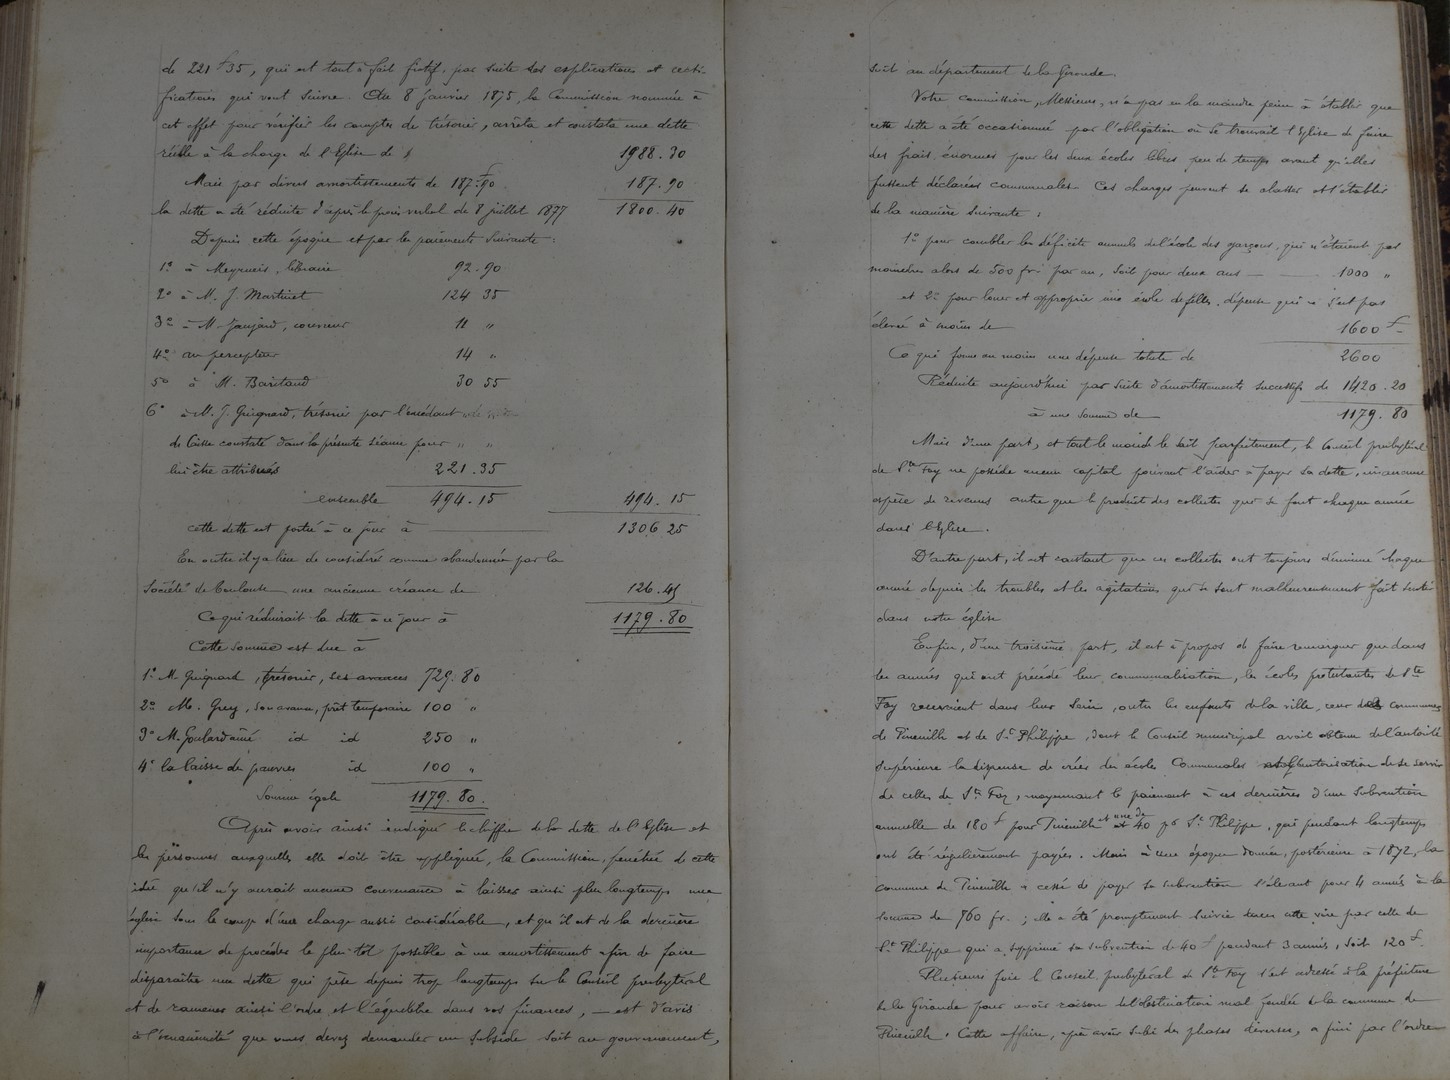 de 221 f 35, qui est tout à fait fictif, par suite des explications et recti-
fications qui vont suivre. Au 8 janvier 1875, la Commission nommée à
cet effet pour vérifier les comptes du trésorier, arrêta et constata une dette
réelle à la charge de l'Eglise de 1988.30
Mais par divers amortissements de 187 f 90 187.90
la dette a été réduite d'après le procès verbal du 8 juillet 1877 1800.40
Depuis cette époque et par les paiements suivants :
1º à Meyrueis, libraire 92.90
2º à M. J. Martinet 124 35
3º à M. Jaujard, couvreur 11 "
4º au percepteur 14 "
5º à M. Baritaud 30 55
6º à M. J. Guignard, trésorier par l'excédant
de Caisse constaté dans la présente séance pour " "
lui être attribués 221.35
ensemble 494.15 494.15
cette dette est portée à ce jour à 1306 25
En outre il y a lieu de considérer comme abandonnée par la
Société de Toulouse une ancienne créance de 126.45
Ce qui réduirait la dette à ce jour à 1179.80
Cette somme est due à
1º M. Guignard, trésorier, ses avances 729.80
2º M. Grey, son avance, prêt temporaire 100 "
3º M. Goulard aîné id id 250 "
4º la Caisse des pauvres id 100 "
Somme égale 1179.80.
Après avoir ainsi indiqué le chiffre de la dette de l'Eglise et
les personnes auxquelles elle doit être appliquée, la Commission, pénétrée de cette
idée qu'il n'y aurait aucune convenance à laisser ainsi plus longtemps une
église sous le coup d'une charge aussi considérable, et qu'il est de la dernière
importance de procéder le plus tôt possible à un amortissement afin de faire
disparaître une dette qui pèse depuis trop longtemps sur le Conseil presbytéral
et de ramener ainsi l'ordre et l'équilibre dans vos finances, — est d'avis
à l'unanimité que vous devez demander un subside soit au gouvernement,
soit au département de la Gironde.
Votre commission, Messieurs, n'a pas eu la moindre peine à établir que
cette dette a été occasionnée par l'obligation où se trouvait l'Eglise de faire
des frais énormes pour les deux écoles libres peu de temps avant qu'elles
fussent déclarées communales. Ces charges peuvent se classer et s'établir
de la manière suivante :
1º pour combler les déficits annuels de l'école des garçons, qui n'étaient pas
moindres alors de 500 frs par an, soit pour deux ans — 1000 "
et 2º pour louer et approprier une école de filles, dépense qui ne s'est pas
élevée à moins de 1600 f
Ce qui forme au moins une dépense totale de 2600
Réduite aujourd'hui par suite d'amortissements successifs de 1420.20
à une somme de 1179.80
Mais d'une part, et tout le monde le sait parfaitement, le Conseil presbytéral
de Ste Foy ne possède aucun capital pouvant l'aider à payer sa dette, ni aucune
espèce de revenus autre que le produit des collectes qui se font chaque année
dans l'Eglise.
D'autre part, il est constant que ces collectes ont toujours diminué chaque
année depuis les troubles et les agitations qui se sont malheureusement fait sentir
dans notre église
Enfin, d'une troisième part, il est à propos de faire remarquer que dans
les années qui ont précédé leur communalisation, les écoles protestantes de Ste
Foy recevaient dans leur sein, outre les enfants de la ville, ceux des communes
de Pineuilh et de St Philippe, dont le Conseil municipal avait obtenu de l'autorité
supérieure la dispense de créer des écoles Communales et l'autorisation de se servir
de celles de Ste Foy, moyennant le paiement à ces dernières d'une subvention
annuelle de 180 f pour Pineuilh et une de 40 pr St Philippe, qui pendant longtemps
ont été régulièrement payées. Mais à une époque donnée, postérieure à 1872, la
commune de Pineuilh a cessé de payer sa subvention s'élevant pour 4 années à la
somme de 760 fr. ; elle a été promptement suivie dans cette voie par celle de
St Philippe qui a supprimé sa subvention de 40 f pendant 3 années, soit 120 f.
Plusieurs fois le Conseil presbytéral de Ste Foy s'est adressé à la préfecture
de la Gironde pour avoir raison de l'obstination mal fondée de la commune de
Pineuilh. Cette affaire, après avoir subi des phases diverses, a fini par l'ordre